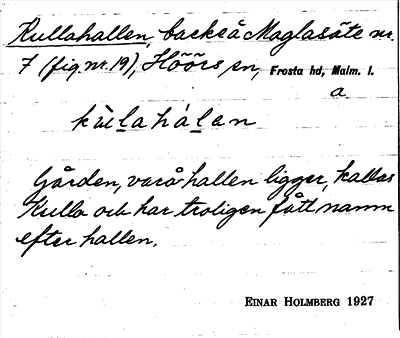 Kullahallen, backe å Maglasäte nr.
7 (fig. nr. 19), Höörs sn, Frosta hd, Malm. l.
a.
kùlahálan
Gården, varå hallen ligger, kallas
Kulla och har troligen fått namn
efter hallen.
EINAR HOLMBERG 1927